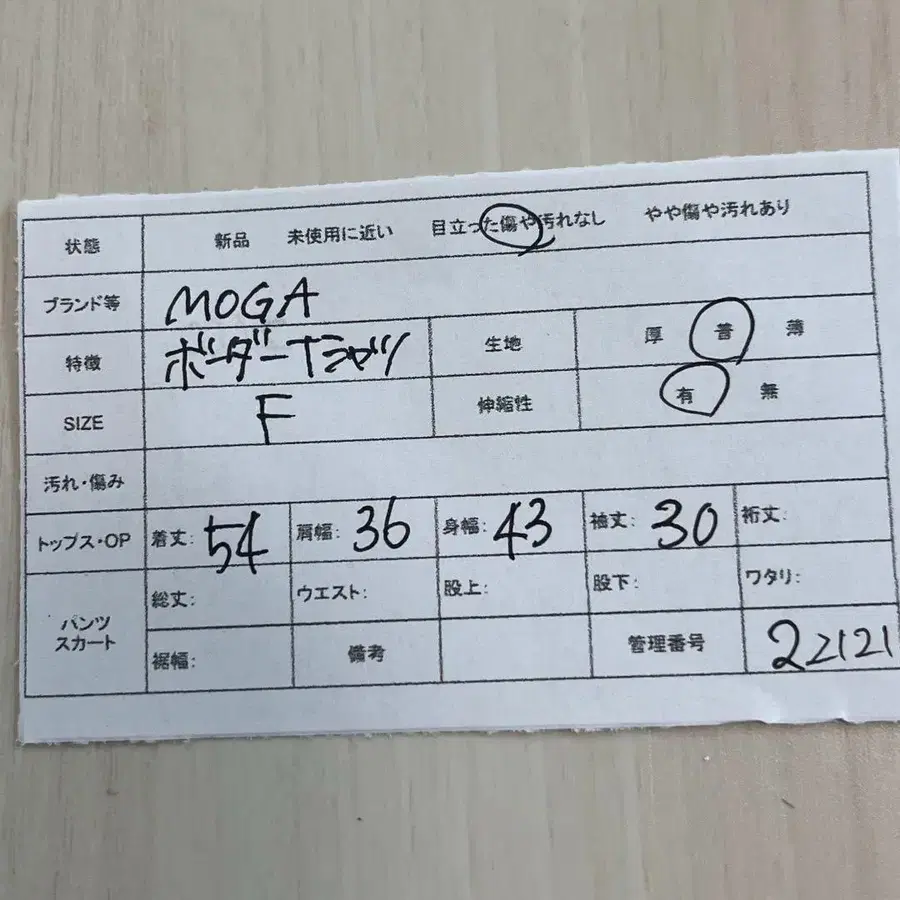 状態 新品 未使用に近い 目立った傷や汚れなし やや傷や汚れあり
ブランド等 MOGA
特徴 ボーダーTシャツ 生地 厚 普 薄
SIZE F 伸縮性 有 無
汚れ・傷み
トップス・OP 着丈: 54 肩幅: 36 身幅: 43 袖丈: 30 裄丈:
パンツ スカート 総丈: ウエスト: 股上: 股下: ワタリ:
裾幅: 備考 管理番号 22121